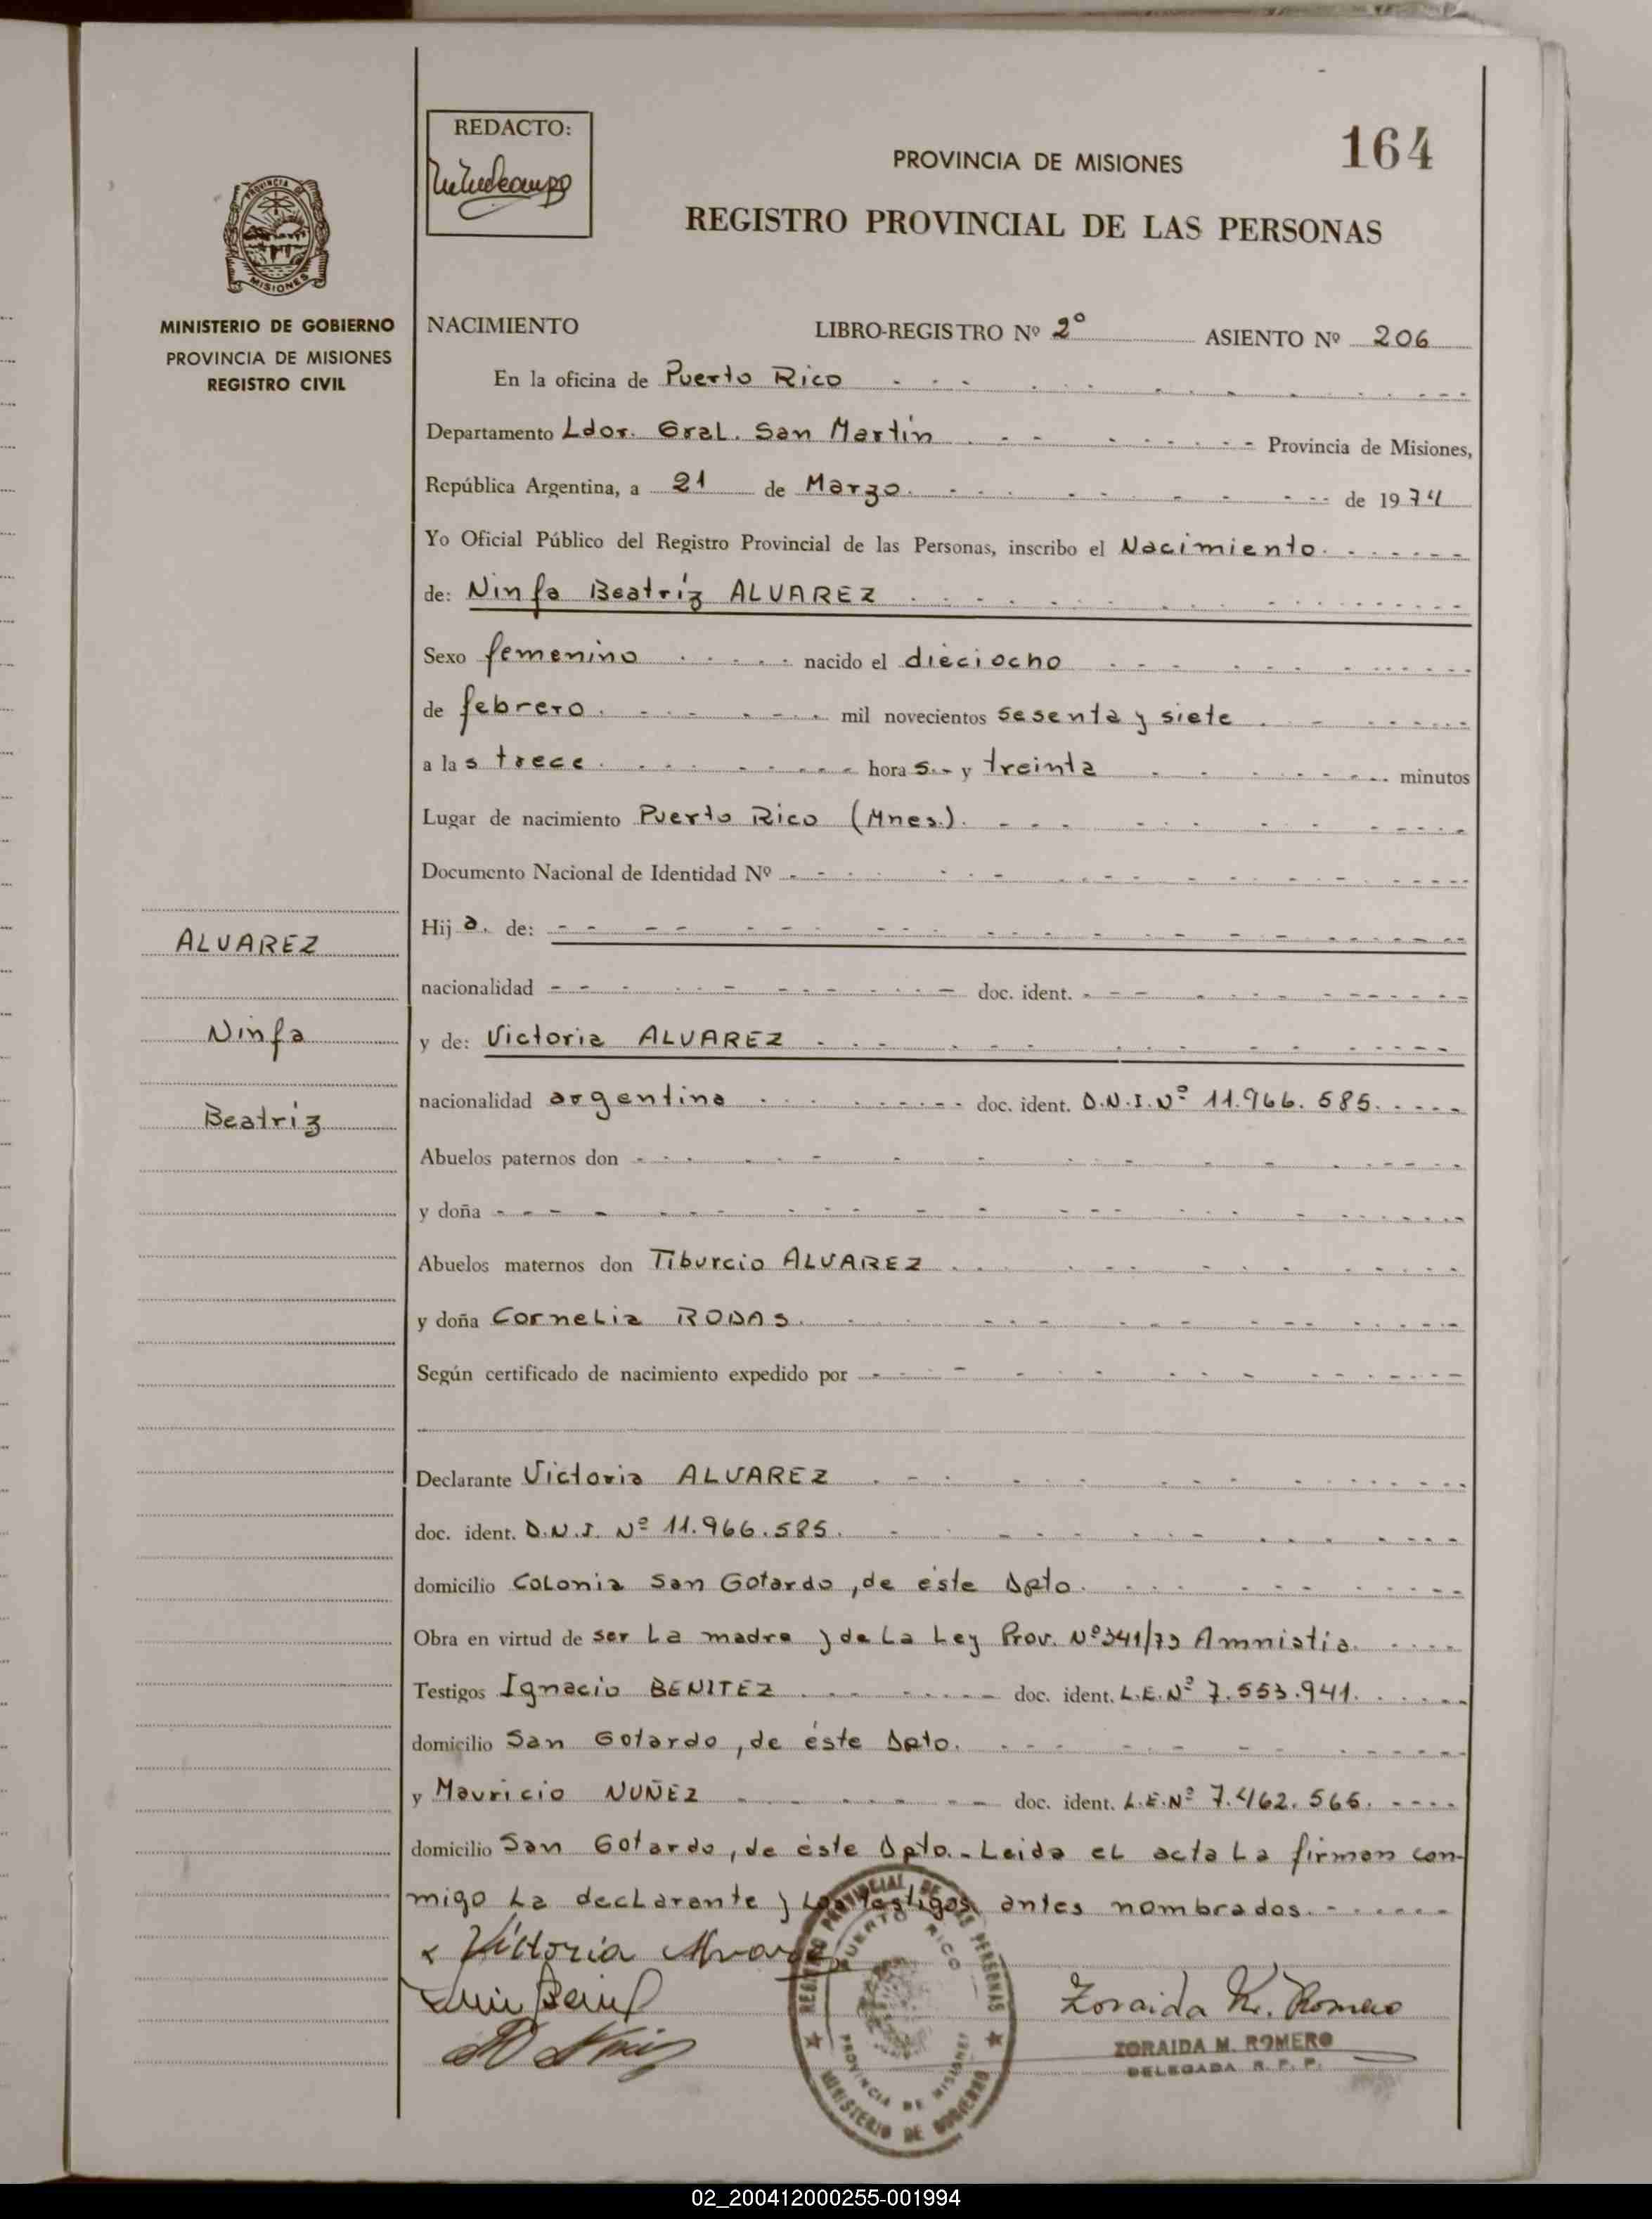 REDACTO:
164
PROVINCIA DE MISIONES
REGISTRO PROVINCIAL DE LAS PERSONAS
PROVINCIA DE
MISIONES
MINISTERIO DE GOBIERNO
PROVINCIA DE MISIONES
REGISTRO CIVIL
NACIMIENTO LIBRO-REGISTRO Nº 2º ASIENTO Nº 206
En la oficina de Puerto Rico
Departamento Ldor. Gral. San Martín Provincia de Misiones,
República Argentina, a 21 de Marzo. de 1974
Yo Oficial Público del Registro Provincial de las Personas, inscribo el Nacimiento.
de: Ninfa Beatríz ALVAREZ
Sexo femenino nacido el dieciocho
de febrero. mil novecientos sesenta y siete
a las trece. horas.- y treinta minutos
Lugar de nacimiento Puerto Rico (Mnes.).
Documento Nacional de Identidad Nº
Hija. de:
nacionalidad doc. ident.
y de: Victoria ALVAREZ
nacionalidad argentina doc. ident. D.N.I.Nº 11.966.585.
Abuelos paternos don
y doña
Abuelos maternos don Tiburcio ALVAREZ
y doña Cornelia RODAS.
Según certificado de nacimiento expedido por
Declarante Victoria ALVAREZ
doc. ident. D.N.I. Nº 11.966.585.
domicilio Colonia San Gotardo, de éste Dpto.
Obra en virtud de ser la madre y de la Ley Prov. Nº341/73 Amnistia.
Testigos Ignacio BENITEZ doc. ident. L.E.Nº 7.553.941.
domicilio San Gotardo, de éste Dpto.
y Mauricio NUÑEZ doc. ident. L.E.Nº 7.462.566.
domicilio San Gotardo, de éste Dpto.- Leida el acta la firman con-
migo la declarante y los testigos antes nombrados.
ALVAREZ
Ninfa
Beatríz
x Victoria Alvarez
Zoraida M. Romero
ZORAIDA M. ROMERO
DELEGADA R. P. P.
REGISTRO PROVINCIAL DE LAS PERSONAS
PUERTO RICO
PROVINCIA DE MISIONES
MINISTERIO DE GOBIERNO
02_200412000255-001994